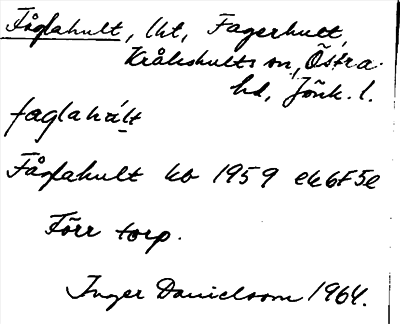 Fåglahult, lht, Fagerhult,
Kråkshults sn, Östra
hd, Jönk. l.
faglahúlt
Fåglahult kb 1959 ek6F5e
Förr torp.
Inger Danielsson 1964.